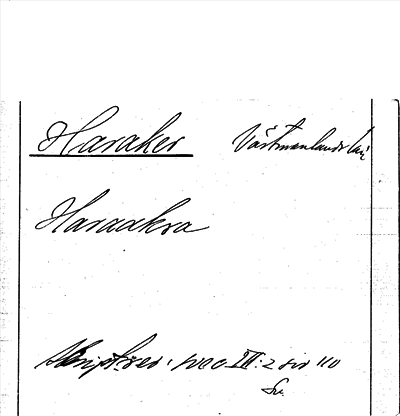 Haraker Västmanlands län
Haraakra
Script. rer. svec III: 2 sid 110